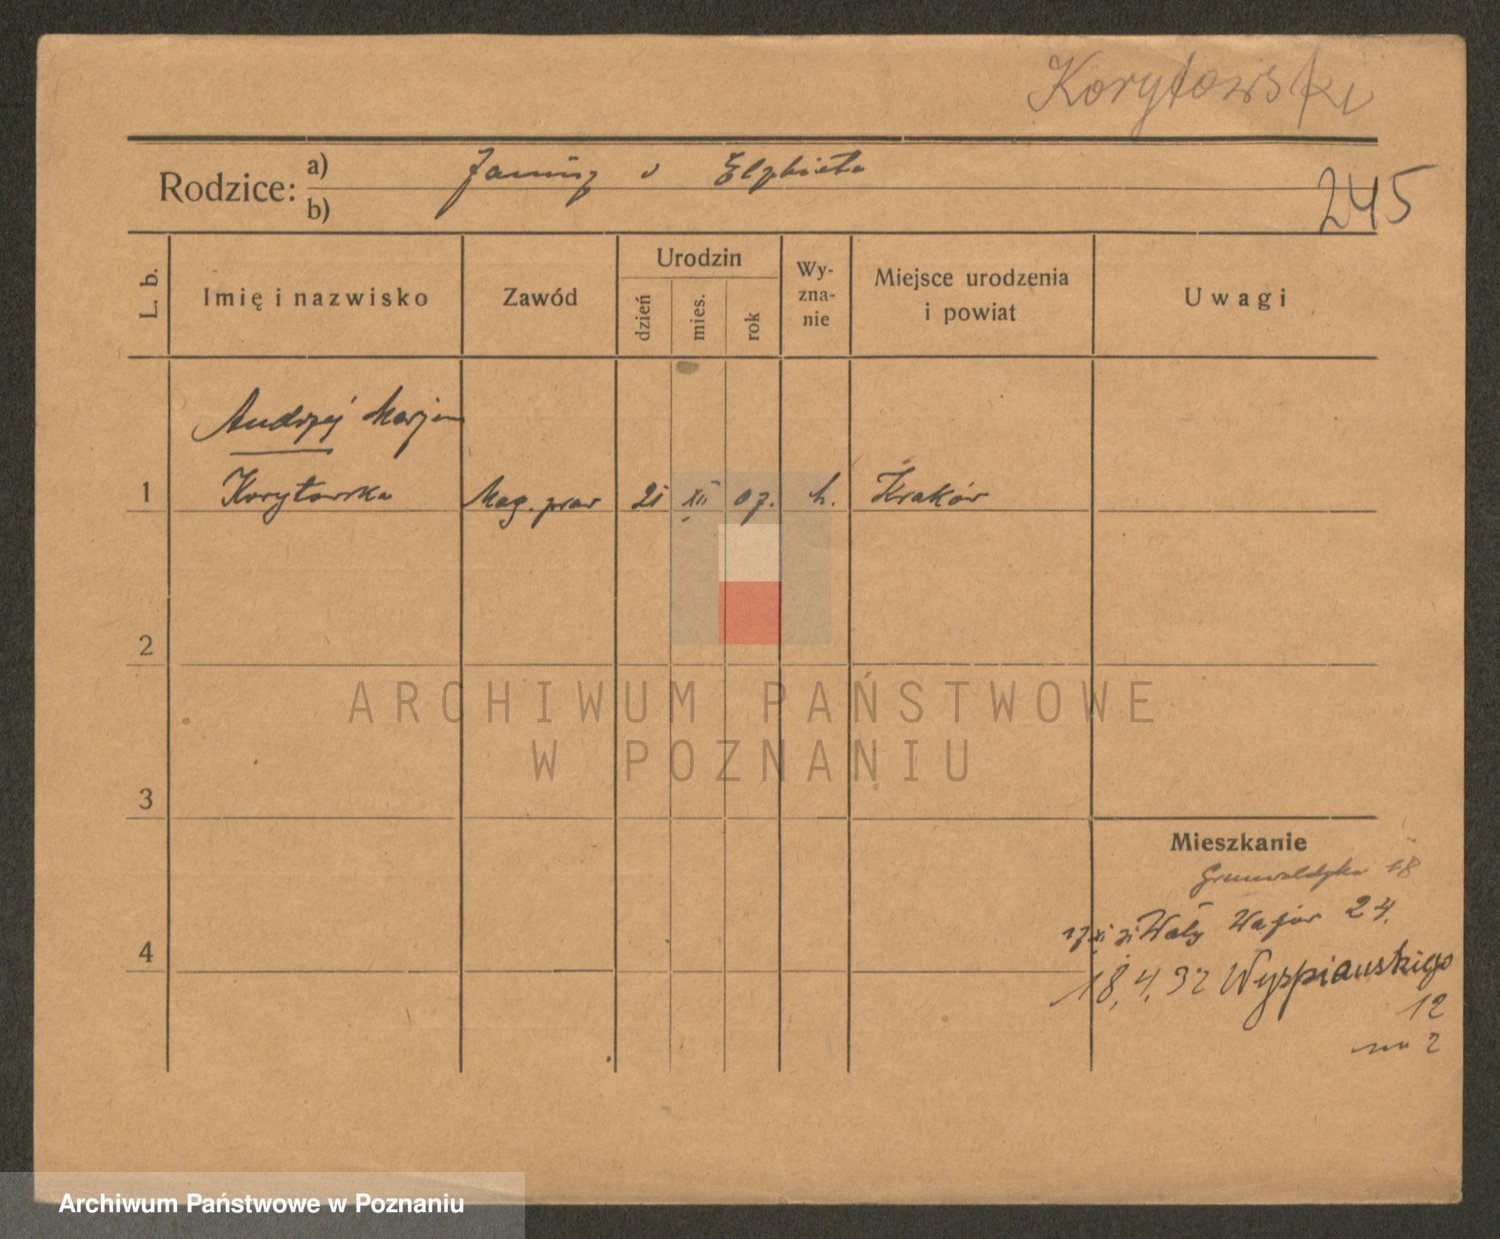 Korytowski
Rodzice: a) Janusz i Elżbieta
b)
245
L. b.
Imię i nazwisko
Zawód
Urodzin
dzień
mies.
rok
Wy-
zna-
nie
Miejsce urodzenia
i powiat
Uwagi
Andrzej Marjan
1 Korytowska Mag. praw 21 XII 07. k. Kraków
2
ARCHIWUM PAŃSTWOWE
W POZNANIU
3
Mieszkanie
Grunwaldzka 18
Wały 24.
4
18.4.32 Wyspiańskiego
12
m 2
Archiwum Państwowe w Poznaniu